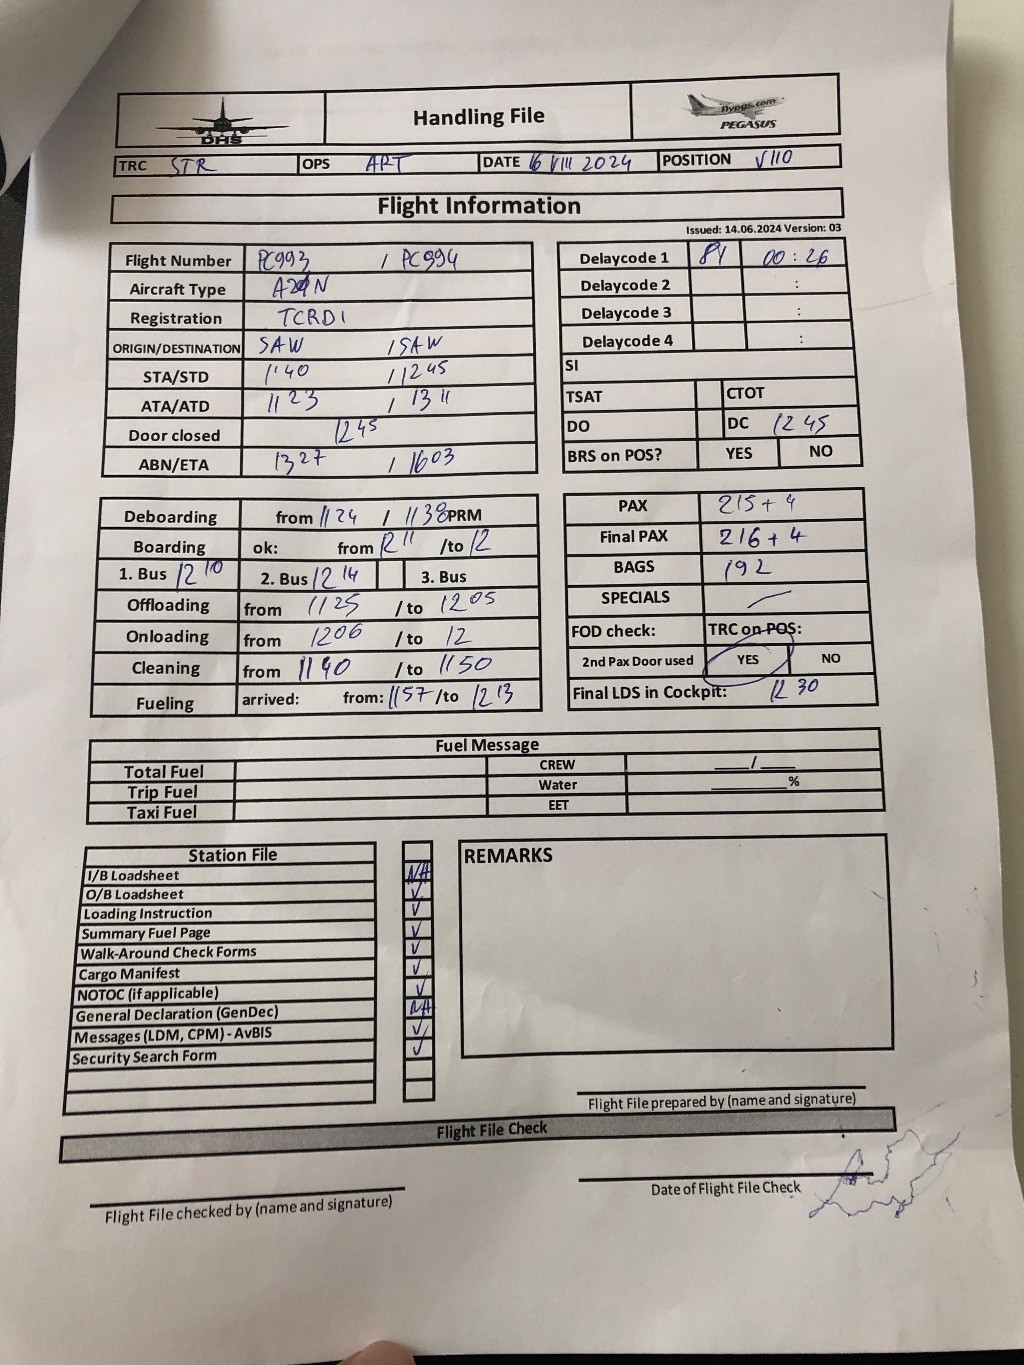 DHS
Handling File
flypgs.com
PEGASUS
TRC STR OPS ART DATE 16 VIII 2024 POSITION V110
Flight Information
Issued: 14.06.2024 Version: 03
Flight Number PC993 / PC994
Aircraft Type
Registration TCRDI
ORIGIN/DESTINATION SAW / SAW
STA/STD 1140 / 1245
ATA/ATD 1123 / 1311
Door closed 1245
ABN/ETA 1327 / 1603
Delaycode 1 00 : 26
Delaycode 2 :
Delaycode 3 :
Delaycode 4 :
SI
TSAT CTOT
DO DC 1245
BRS on POS? YES NO
Deboarding from 1124 / 1138 PRM
Boarding ok: from 1211 /to 12
1. Bus 1210 2. Bus 1214 3. Bus
Offloading from 1125 / to 1205
Onloading from 1206 / to 12
Cleaning from 1140 / to 1150
Fueling arrived: from: 1157 /to 1213
PAX 215 + 4
Final PAX 216 + 4
BAGS 192
SPECIALS —
FOD check: TRC on POS:
2nd Pax Door used YES NO
Final LDS in Cockpit: 1230
Fuel Message
Total Fuel CREW ___/___
Trip Fuel Water ______%
Taxi Fuel EET
Station File
I/B Loadsheet NA
O/B Loadsheet ✓
Loading Instruction ✓
Summary Fuel Page ✓
Walk-Around Check Forms ✓
Cargo Manifest ✓
NOTOC (if applicable) ✓
General Declaration (GenDec) NA
Messages (LDM, CPM) - AvBIS ✓
Security Search Form ✓
REMARKS
Flight File prepared by (name and signature)
Flight File Check
Flight File checked by (name and signature)
Date of Flight File Check